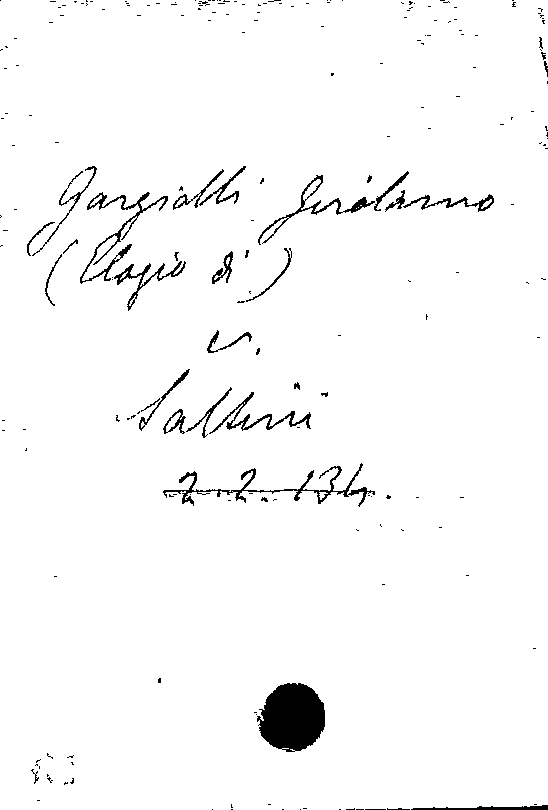 Gargiolli Girolamo
(Elogio di)
v.
Saltini
2.2.134.